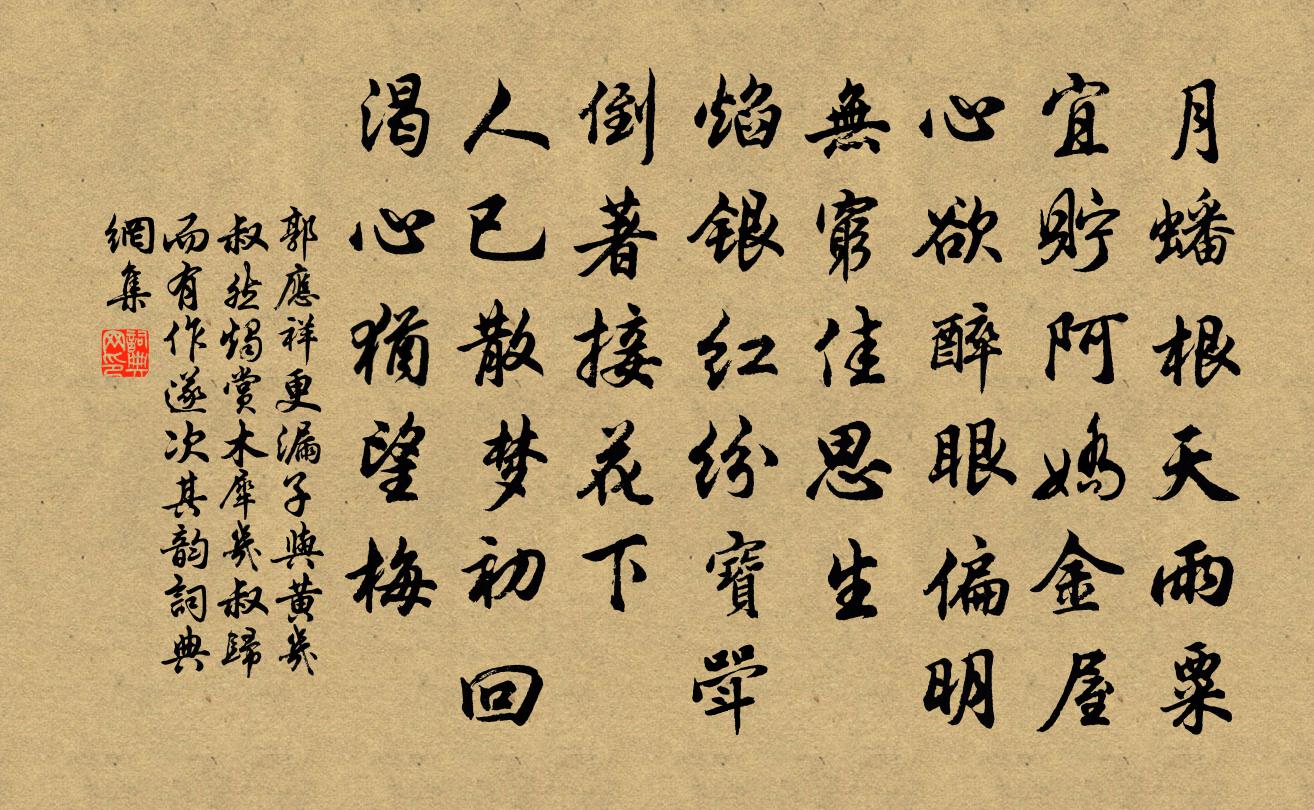 月蟠根天雨粟
宜貯阿嬌金屋
心欲醉眼偏明
無窮佳思生
焰銀紅紛寶斝
倒著接花下
人已散梦初回
渴心猶望梅
郭應祥更漏子與黄幾
叔然燭賞木犀幾叔歸
而有作遂次其韵詞典
網集
詞典网印